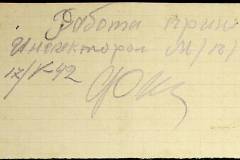 Работа прин
Инспектором М/ю/
17/V-42